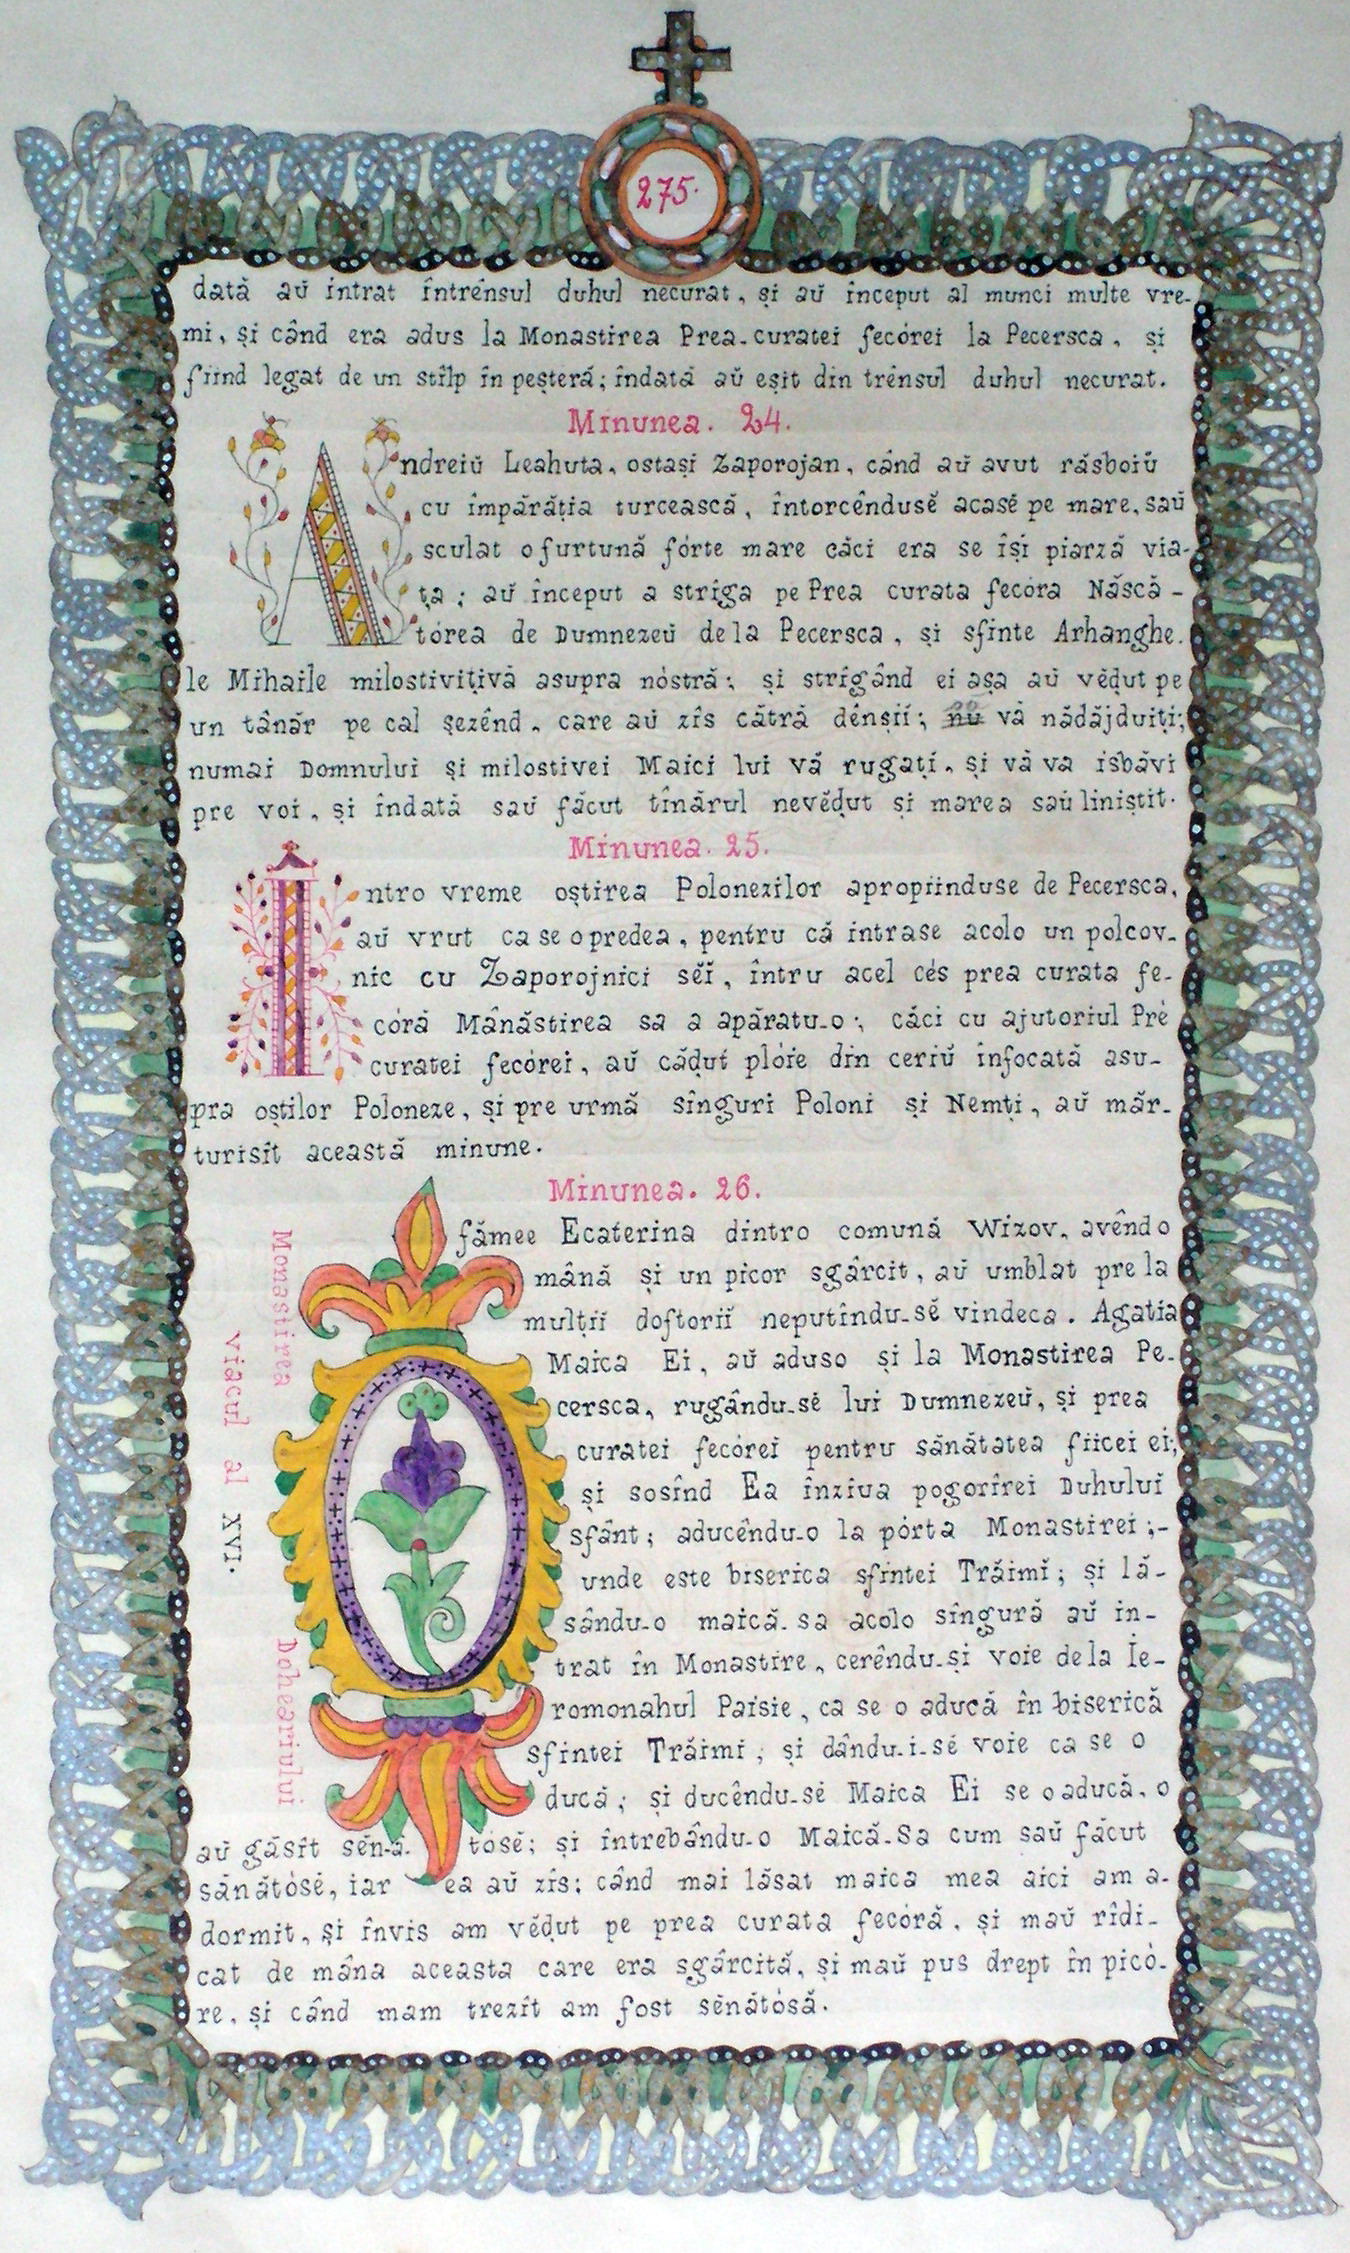 275.
dată aŭ intrat întrênsul duhul necurat, și aŭ început al munci multe vre-
mi, și când era adus la Monastirea Prea-curatei fecórei la Pecersca, și
fiind legat de un stîlp în peșteră; îndată aŭ eșit din trênsul duhul necurat.
Minunea. 24.
Andreiŭ Leahuta, ostași Zaporojan, când aŭ avut răsboiŭ
cu împărăția turcească, întorcênduse acasĕ pe mare, saŭ
sculat o furtună fórte mare căci era se își piarză via-
ța; aŭ început a striga pe Prea curata fecóra Născă-
tórea de Dumnezeŭ dela Pecersca, și sfinte Arhanghe-
le Mihaile milostivițivă asupra nóstră; și strigând ei așa aŭ vĕdut pe
un tânăr pe cal șezênd, care aŭ zis cătră dênșii; nu vă nădăjduiți;
numai Domnului și milostivei Maici lui vă rugați, și vă va isbăvi
pre voi, și îndată saŭ făcut tînărul nevĕdut și marea saŭ liniștit.
Minunea. 25.
Intro vreme oștirea Polonezilor apropiinduse de Pecersca,
aŭ vrut ca se o predea, pentru că intrase acolo un polcov-
nic cu Zaporojnici sĕi, întru acel ces prea curata fe-
córă Mănăstirea sa a apăratu-o; căci cu ajutoriul Pre
curatei fecórei, aŭ căḑut plóie din ceriŭ înfocată asu-
pra oștilor Poloneze, și pre urmă sînguri Poloni și Nemți, aŭ măr-
turisît această minune.
Minunea. 26.
O fămee Ecaterina dintro comună Wizov, avênd o
mână și un picor sgârcit, aŭ umblat pre la
mulții doftorii neputîndu-sĕ vindeca. Agatia
Maica Ei, aŭ aduso și la Monastirea Pe-
cersca, rugându-sĕ lui Dumnezeŭ, și prea
curatei fecórei pentru sănătatea fiicei ei;
și sosînd Ea înziua pogorîrei Duhului
sfânt; aducêndu-o la pórta Monastirei;-
unde este biserica sfintei Trăimi; și lă-
sându-o maică-sa acolo sîngură aŭ in-
trat în Monastire, cerêndu-și voie dela Ie-
romonahul Paisie, ca se o aducă în biserică
sfintei Trăimi; și dându-i-sĕ voie ca se o
ducă; și ducêndu-sĕ Maica Ei se o aducă, o
aŭ găsît sĕnă-tósĕ; și întrebându-o Maică-Sa cum saŭ făcut
sănătósĕ, iar ea aŭ zîs; când mai lăsat maica mea aici am a-
dormit, și învis am vĕdut pe prea curata fecóră, și maŭ rîdi-
cat de mâna aceasta care era sgârcită, și maŭ pus drept în picó-
re, și când mam trezît am fost sĕnătósă.
Monastirea Doheariului
viacul al XVI.